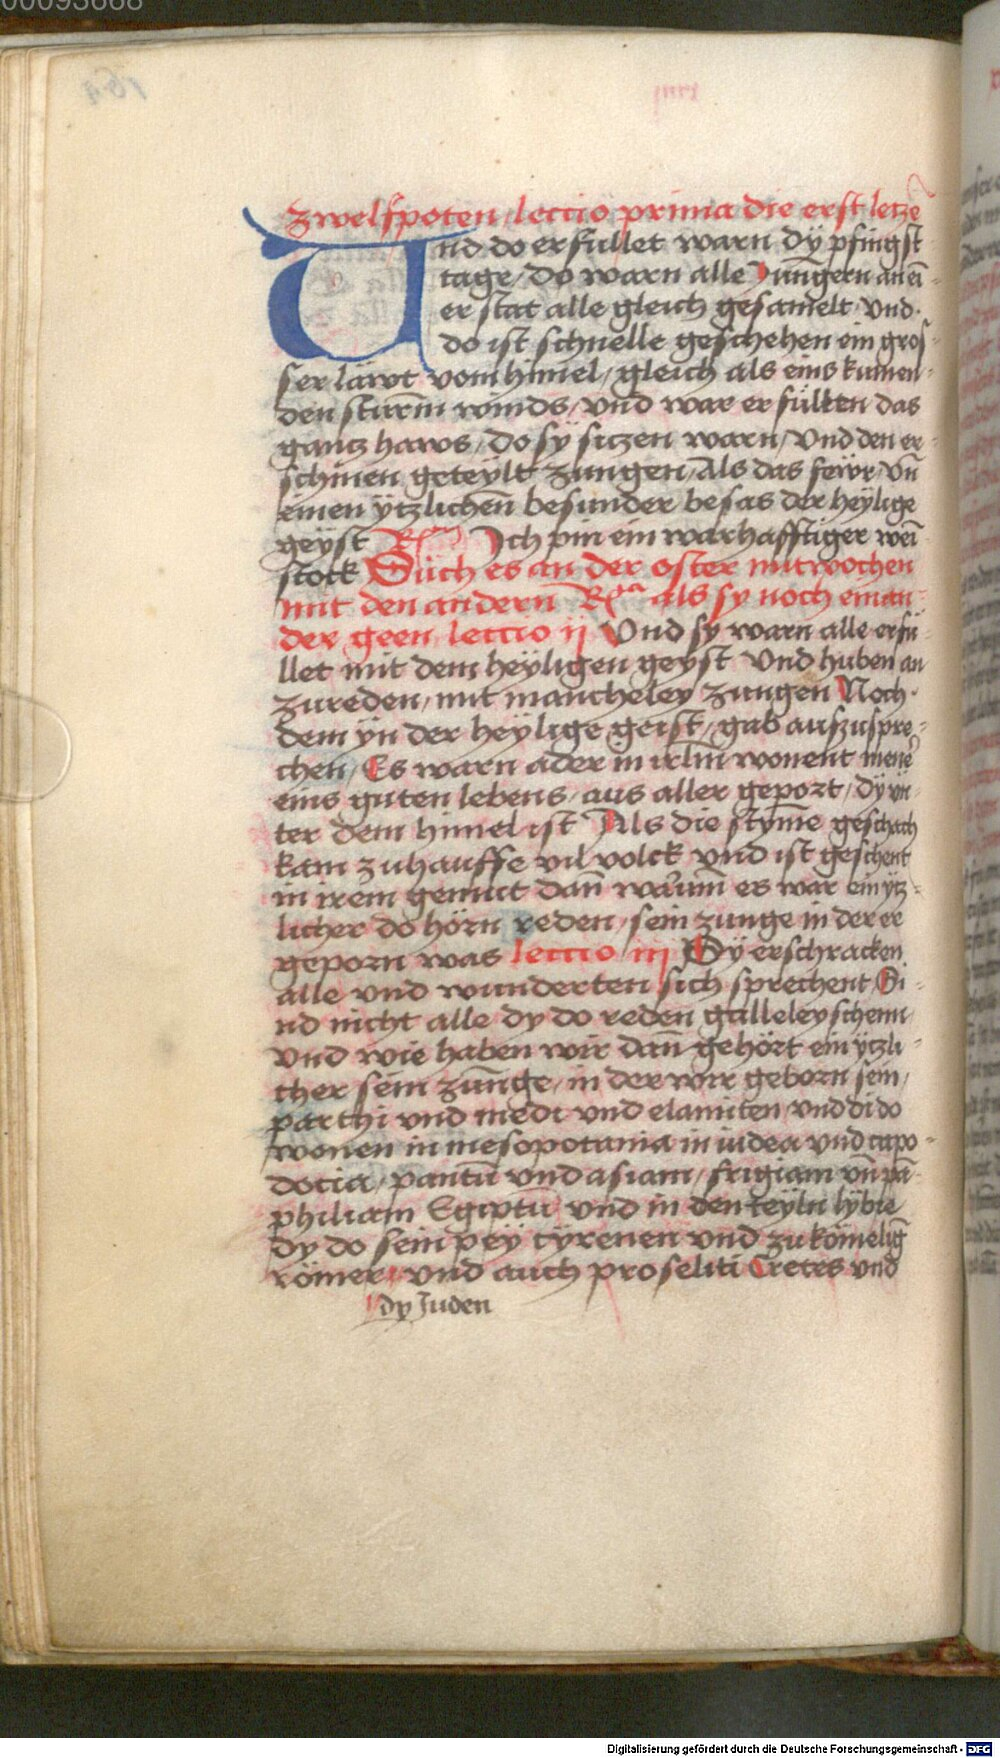 zwelfpoten / lectio prima die erst letze
Und do erfüllet warn dÿ pfingst
tage / do warn alle Jungern an ei-
er stat alle gleich gesamelt / und
do ist schnelle geschehen ein gros-
ser läwt vom himel / gleich als eins kumen-
den sturm winds / und war erfüllen das
gantz haws / do sÿ sitzen warn / Und den er-
schinen geteÿlt zungen / Als das fewr / Vn̄
einen ÿtzlichen̄ besunder besas der heÿlige
geÿst Ich pin ein warhafftiger wein
stock Such es an der oster mitwochen
mit den andern als sy noch einan-
der geen lectio ij Und sy warn alle erfü-
llet mit dem heÿligen geyst Und huben an
zureden / mit mancheley zungen Noch
dem ÿn der heÿlige geist / gab aufzuspre-
chen / Es warn ader in irlm̄ wonent
eins guten lebens / aus aller geport / dÿ vn-
ter dem himel ist Als die stym̄e geschach
kam zuhauffe vil volck und ist geschent
in irem gemüt dan̄ warum̄ es war ein ÿtz-
licher do hörn reden / sein zunge in der er
geporn was lectio iij Sÿ erschracken
alle und wunderten sich sprechent / Si-
nd nicht alle dy do reden galleleyschenn
Und wie haben wir dan̄ gehört ein ÿtzli-
cher sein zun̄ge / in der wir geborn sein /
parthi und medi und elamiten und di do
wonen in mesopotania in iudea und capo-
docia / pantū und asiam / frigiam vn̄ pā-
philiam Egiptū und in den teyln lÿbie
dy do sein pëy cÿrenen und zukömeliḡ
römer / und auch proseliti Cretes und
dy Juden
Digitalisierung gefördert durch die Deutsche Forschungsgemeinschaft - DFG